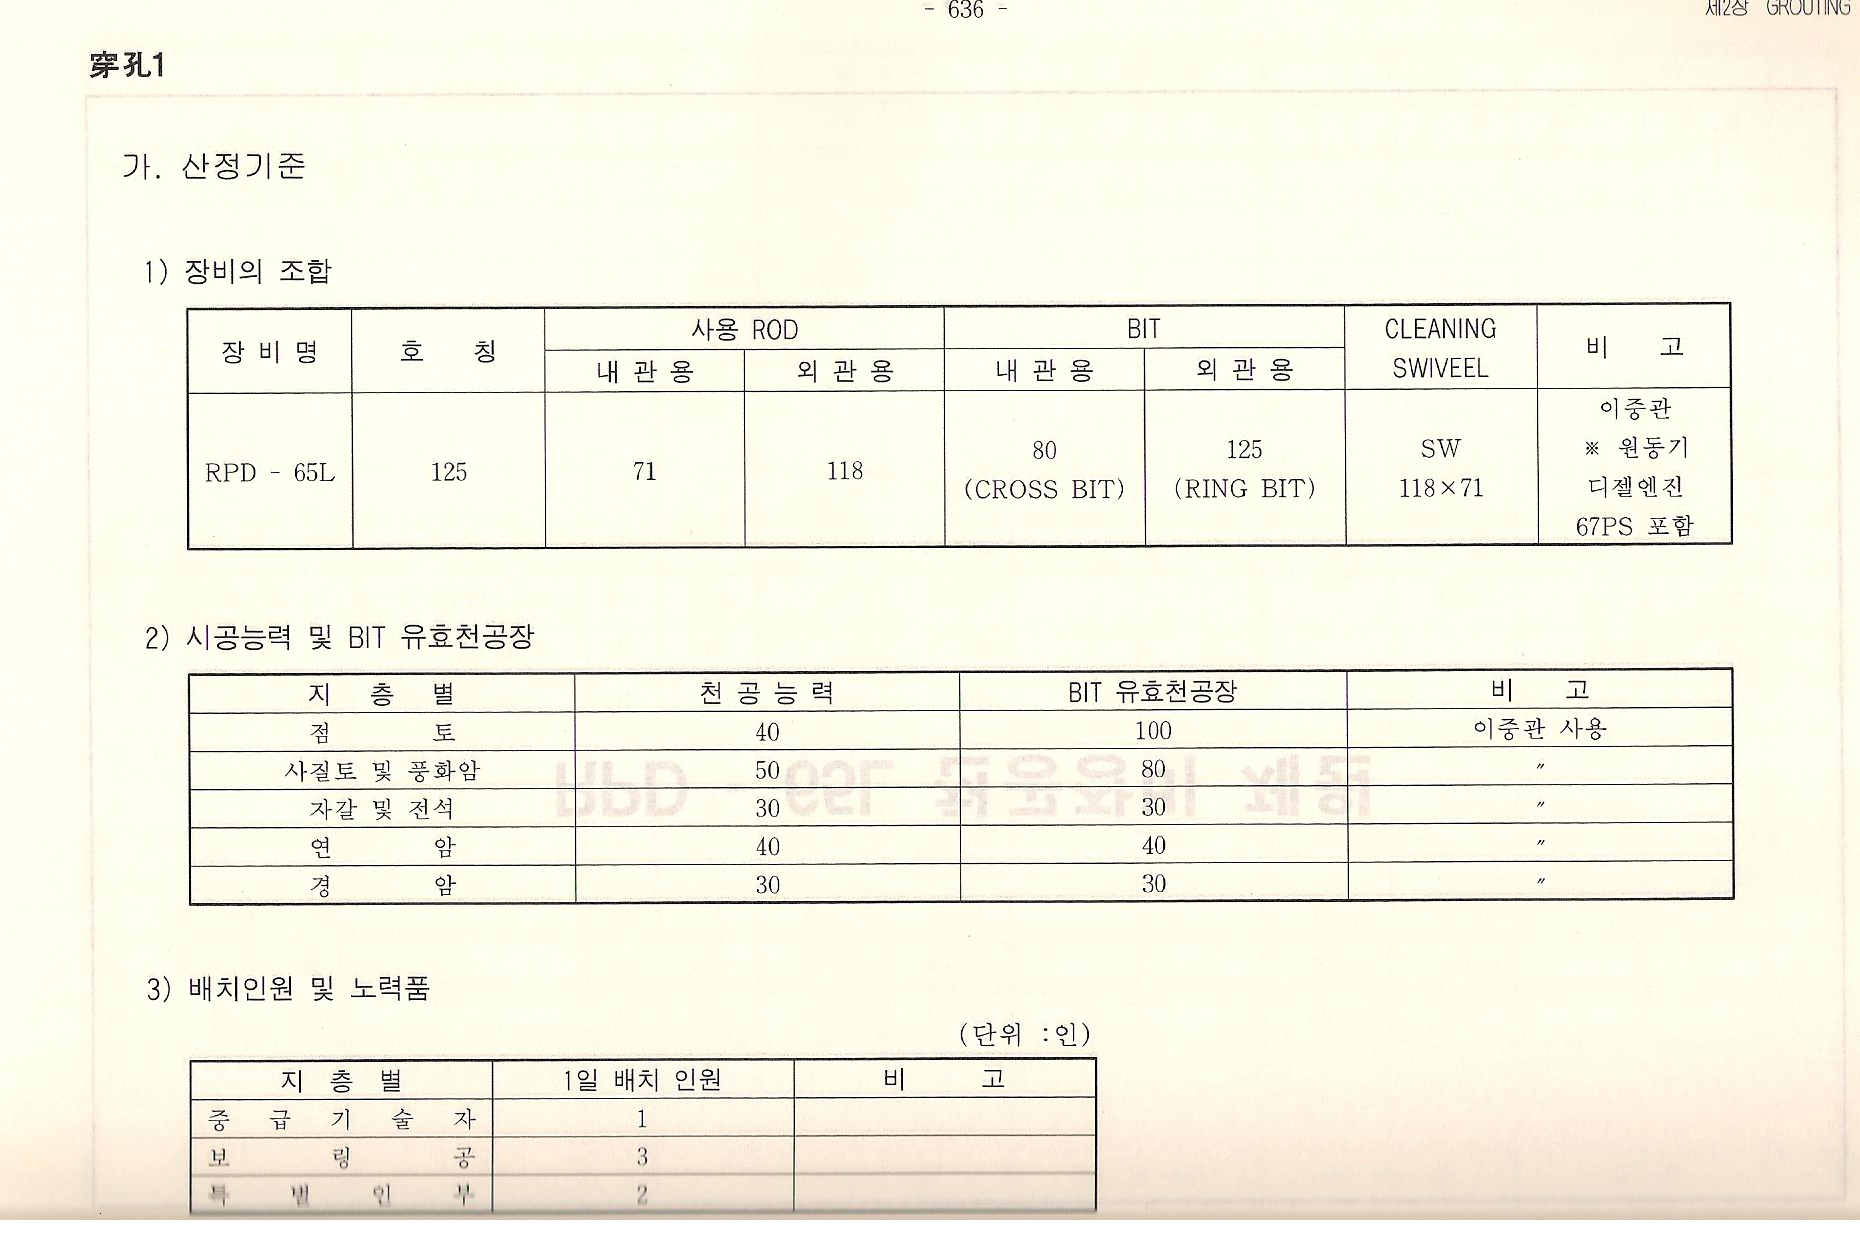 - 636 -
제2장 GROUTING
穿孔1
가. 산정기준
1) 장비의 조합
장 비 명 호 칭 사용 ROD BIT CLEANING SWIVEEL 비 고
내 관 용 외 관 용 내 관 용 외 관 용
RPD - 65L 125 71 118 80 (CROSS BIT) 125 (RING BIT) SW 118×71 이중관
※ 원동기
디젤엔진
67PS 포함
2) 시공능력 및 BIT 유효천공장
지 층 별 천 공 능 력 BIT 유효천공장 비 고
점 토 40 100 이중관 사용
사질토 및 풍화암 50 80 〃
자갈 및 전석 30 30 〃
연 암 40 40 〃
경 암 30 30 〃
3) 배치인원 및 노력품
(단위 :인)
지 층 별 1일 배치 인원 비 고
중 급 기 술 자 1
보 링 공 3
특 별 인 부 2